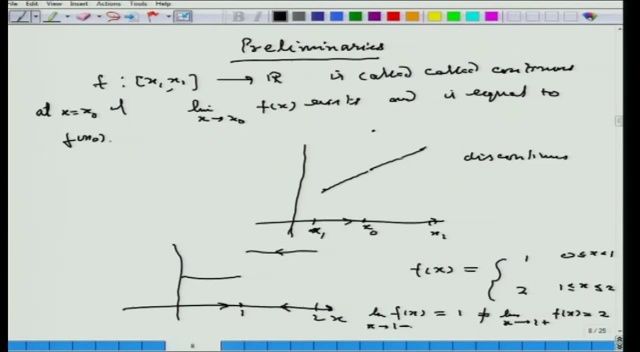 File Edit View Insert Actions Tools Help
Preliminaries
f : [x₁, x₁] → ℝ is called called continuous
at x=x₀ if lim x→x₀ f(x) exists and is equal to
f(x₀).
discontinuous
x₁ x₀ x₂
f(x) = { 1 0≤x<1
2 1≤x≤2
1 2 x
lim x→1- f(x) = 1 ≠ lim x→1+ f(x) = 2
8 / 25
8